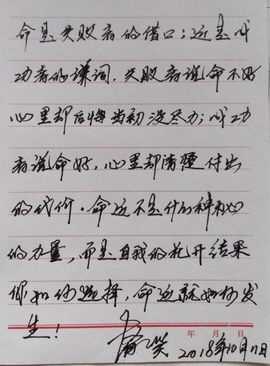 命是失败者的借口；运是成
功者的谦词，失败者说命不好
心里却后悔当初没尽力；成功
者说命好，心里却清楚付出
的代价。命运不是什么神秘
的力量，而是自我的花开结果
你如何选择，命运就如何发
生！
年 月 日
笑 2018年10月11日